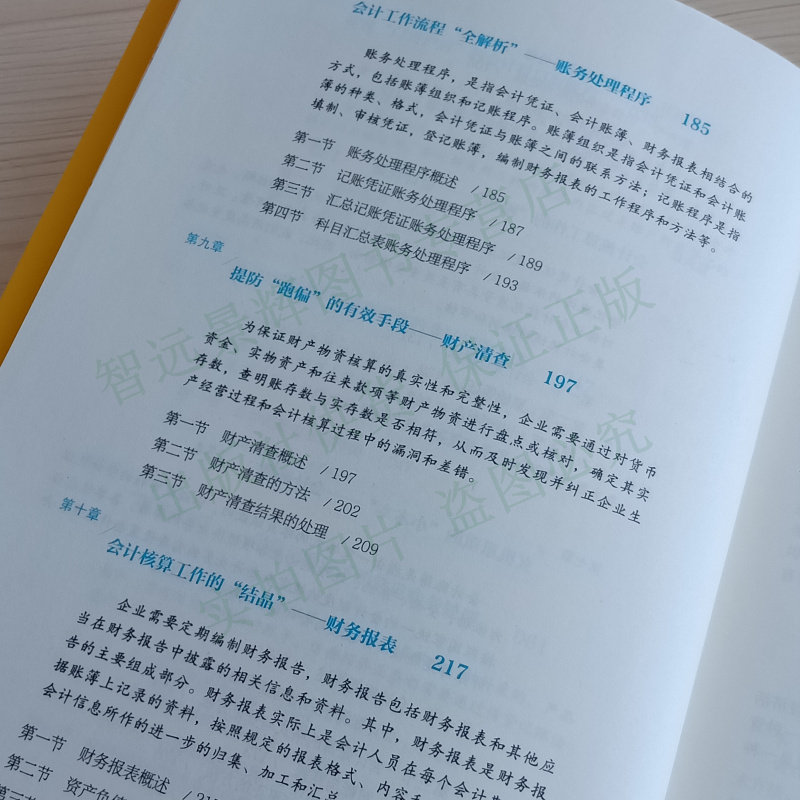 会计工作流程“全解析”——账务处理程序 185
账务处理程序，是指会计凭证、会计账簿、财务报表相结合的
方式，包括账簿组织和记账程序。账簿组织是指会计凭证和会计账
簿的种类、格式，会计凭证与账簿之间的联系方法；记账程序是指
填制、审核凭证，登记账簿，编制财务报表的工作程序和方法等。
第一节 账务处理程序概述 /185
第二节 记账凭证账务处理程序 /187
第三节 汇总记账凭证账务处理程序 /189
第四节 科目汇总表账务处理程序 /193
第九章
提防“跑偏”的有效手段——财产清查 197
为保证财产物资核算的真实性和完整性，企业需要通过对货币
资金、实物资产和往来款项等财产物资进行盘点或核对，确定其实
存数，查明账存数与实存数是否相符，从而及时发现并纠正企业生
产经营过程和会计核算过程中的漏洞和差错。
第一节 财产清查概述 /197
第二节 财产清查的方法 /202
第三节 财产清查结果的处理 /209
第十章
会计核算工作的“结晶”——财务报表 217
企业需要定期编制财务报告，财务报告包括财务报表和其他应
当在财务报告中披露的相关信息和资料。其中，财务报表是财务报
告的主要组成部分。财务报表实际上是会计人员在每个会计
据账簿上记录的资料，按照规定的报表格式、内容
会计信息所作的进一步的归集、加工和汇总
第一节 财务报表概述
第二节 资产负债
第三节
智远景辉图书
保证正版
出版社
实拍图片 盗图必究